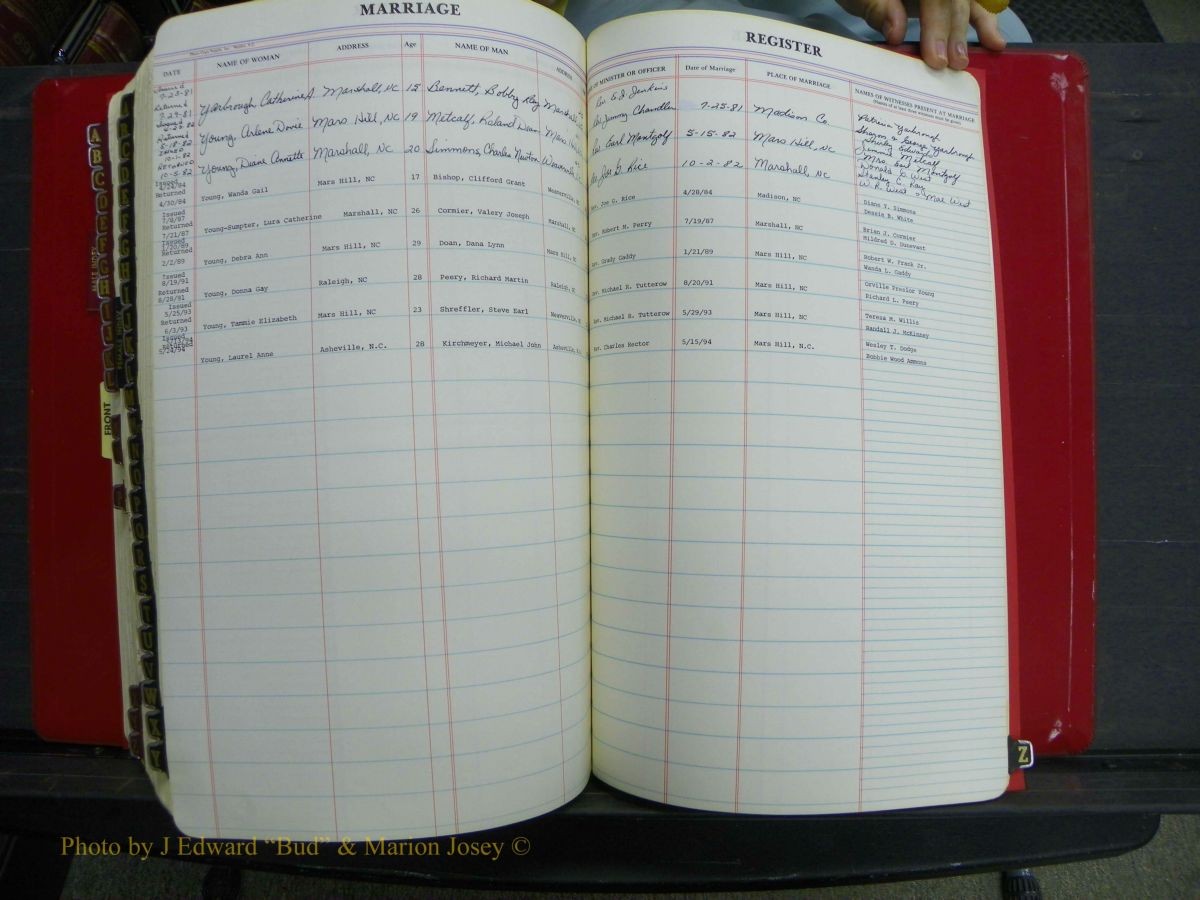 MARRIAGE
REGISTER
DATE NAME OF WOMAN ADDRESS Age NAME OF MAN ADDRESS OF MINISTER OR OFFICER Date of Marriage PLACE OF MARRIAGE NAMES OF WITNESSES PRESENT AT MARRIAGE
7-25-81
Returned
7-29-81
Yarbrough, Catherine A. Marshall, NC 15 Bennett, Bobby Ray Marshall Rev. E. J. Jenkins
7-25-81 Madison Co. Patricia Yarbrough
George Yarbrough
Returned
5-18-82
Young, Arlene Dovie Mars Hill, NC 19 Metcalf, Roland Dean Mars Hill Jimmy Chandler
Earl Montgolf 5-15-82 Mars Hill, NC Shirley Edwards
Jimmie Metcalf
Mrs. Earl Montgolf
10-1-82
RETURNED
10-5-82
Young, Duane Annette Marshall, NC 20 Simmons, Charles Newton Joe G. Rice 10-2-82 Marshall, NC Donald C. West
Stanley C. Ray
W. R. West Mae West
Returned
4/30/84
Young, Wanda Gail Mars Hill, NC 17 Bishop, Clifford Grant Weaverville, NC Rev. Joe G. Rice 4/28/84 Madison, NC Diane Y. Simmons
Dessie B. White
Issued
7/8/87
Returned
7/21/87
Young-Sumpter, Lura Catherine Marshall, NC 26 Cormier, Valery Joseph Marshall, NC Rev. Robert M. Perry 7/19/87 Marshall, NC Brian J. Cormier
Mildred D. Dunevant
Returned
2/2/89
Young, Debra Ann Mars Hill, NC 29 Doan, Dana Lynn Mars Hill, NC Rev. Grady Gaddy 1/21/89 Mars Hill, NC Robert W. Frack Jr.
Wanda L. Gaddy
Issued
8/19/91
Returned
8/28/91
Young, Donna Gay Raleigh, NC 28 Peery, Richard Martin Raleigh, NC Rev. Michael R. Tutterow 8/20/91 Mars Hill, NC Orville Young
Richard L. Peery
Issued
5/25/93
Returned
6/3/93
Young, Tammie Elizabeth Mars Hill, NC 23 Shreffler, Steve Earl Weaverville, Rev. Michael R. Tutterow 5/29/93 Mars Hill, NC Teresa M. Willis
Randall J. McKinney
Issued
5/24/94
Young, Laurel Anne Asheville, N.C. 28 Kirchmeyer, Michael John Asheville, Rev. Charles Rector 5/15/94 Mars Hill, N.C. Wesley T. Dodge
Bobbie Wood Ammons
FRONT
A
B
C
D
E
F
G
H
I
Z
Photo by J Edward “Bud” & Marion Josey ©